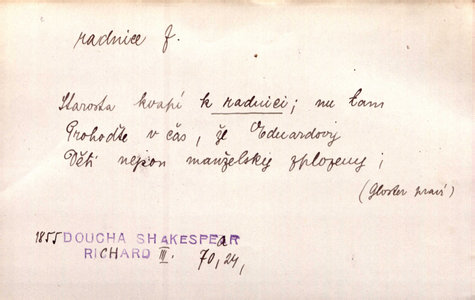 radnice f.
Starosta kvapí k radnici; nu tam
Prohoďte v čas, že Eduardovy
Děti nejsou manželsky zplozeny;
(Gloster praví)
1855 DOUCHA SHAKESPEAR
RICHARD III. 70, 24,